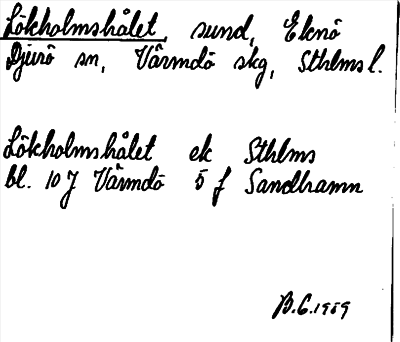 Lökholmshålet, sund, Eknö
Djurö sn, Värmdö skg, Sthlms l.
Lökholmshålet ek Sthlms
bl. 10 J Värmdö 5 f Sandhamn
B.G. 1959